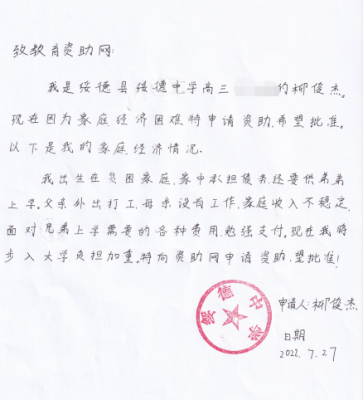 致教育资助网:
我是绥德县绥德中学高三 的柳俊杰。
现在因为家庭经济困难特申请资助,希望批准。
以下是我的家庭经济情况.
我出生在贫困家庭、家中承担债务还要供弟弟
上学,父亲外出打工、母亲没有工作,家庭收入不稳定,
面对兄弟上学需要的各种费用勉强支付。现在我将
步入大学负担加重。特向资助网申请资助、望批准!
绥德中学
申请人:柳俊杰
日期
2022.7.27